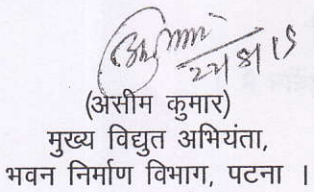 (असीम कुमार)
मुख्य विद्युत अभियंता,
भवन निर्माण विभाग, पटना ।